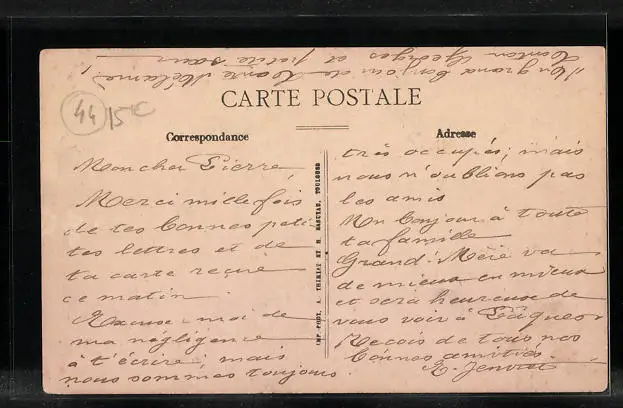 Un grand bonjour de Tante Mélanie,
Tonton Georges et petite sœur
CARTE POSTALE
44
15€
Correspondance
Adresse
Mon cher Pierre,
Merci mille fois
de tes bonnes peti-
tes lettres et de
ta carte reçue
ce matin.
Excuse-moi de
ma négligence
à t'écrire, mais
nous sommes toujours
IMP.-PHOT. A. THIRIAT ET H. BASUYAU, TOULOUSE
très occupés; mais
nous n'oublions pas
les amis
Un bonjour à toute
ta famille
Grand-Mère va
de mieux en mieux
et sera heureuse de
vous voir à Pâques.
Reçois de tous nos
bonnes amitiés.